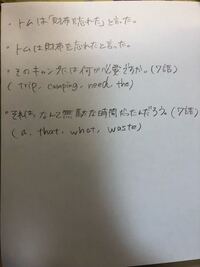 ・トムは「財布を忘れた」と言った。
・トムは財布を忘れたと言った。
・そのキャンプには何が必要ですか。(7語)
( trip, camping, need, the )
・それは、なんて無駄な時間だったんだろう。(7語)
( a, that, what, waste )